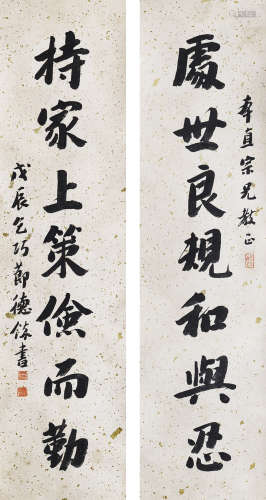 處世良規和與忍
奉直宗兄教正
持家上策儉而勤
戊辰乞巧節德館書